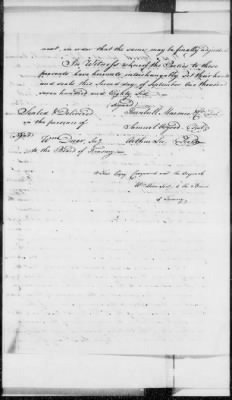 ment, in case that the same, may be finally adjusted.
In Witness whereof the Parties to these
presents have hereunto interchangeably set their hands
and seals this Second day of September One thousand
seven hundred and Eighty Six
Signed
Sealed & Delivered
in the presence of
Samuel Osgood Seal
Signed Wm Duer Secy
Arthur Lee Seal
to the Board of Treasury
A true Copy Compared with the Original
Wm Duer Secy to the Board
of Treasury